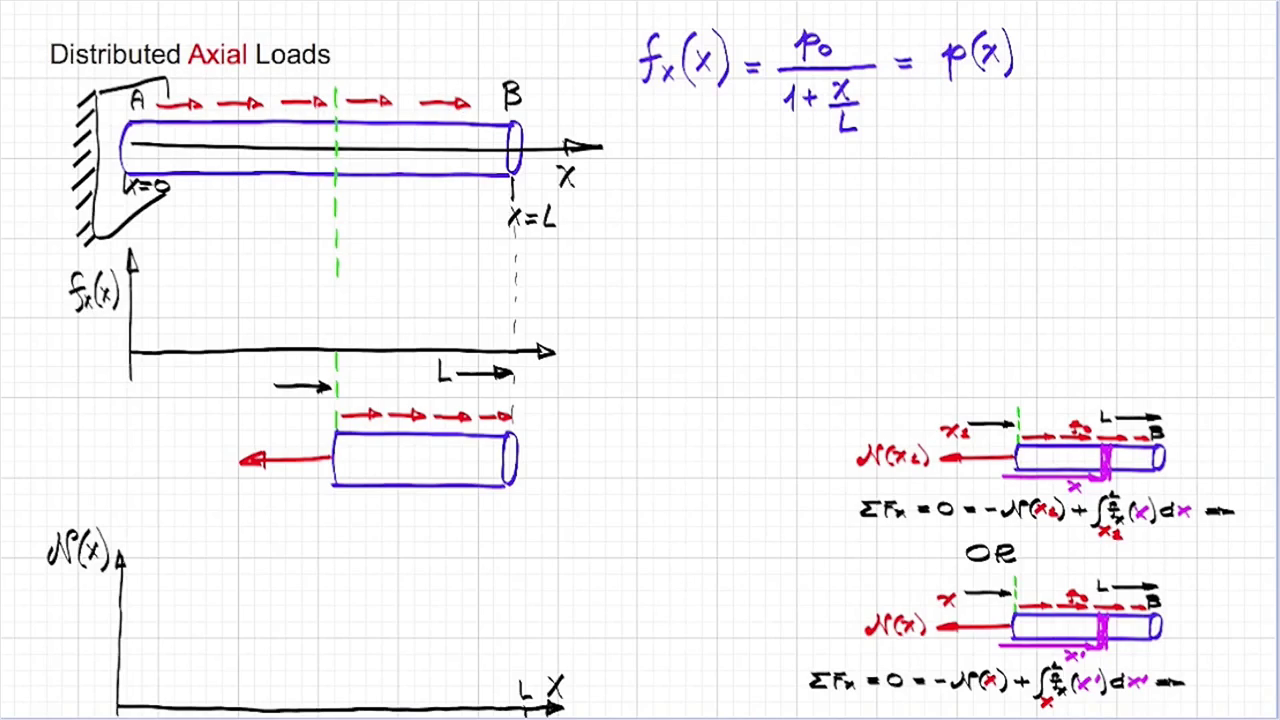 Distributed Axial Loads
f_x(x) = p_0 / (1 + x/L) = p(x)
A B
x=0
X
x=L
f_x(x)
L
N(x)
L X
x_1 L
B
N(x_1)
x
ΣF_x = 0 = -N(x_1) + ∫_{x_1}^{L} f_x(x)dx
OR
x L
B
N(x)
x'
ΣF_x = 0 = -N(x) + ∫_{x}^{L} f_x(x')dx'